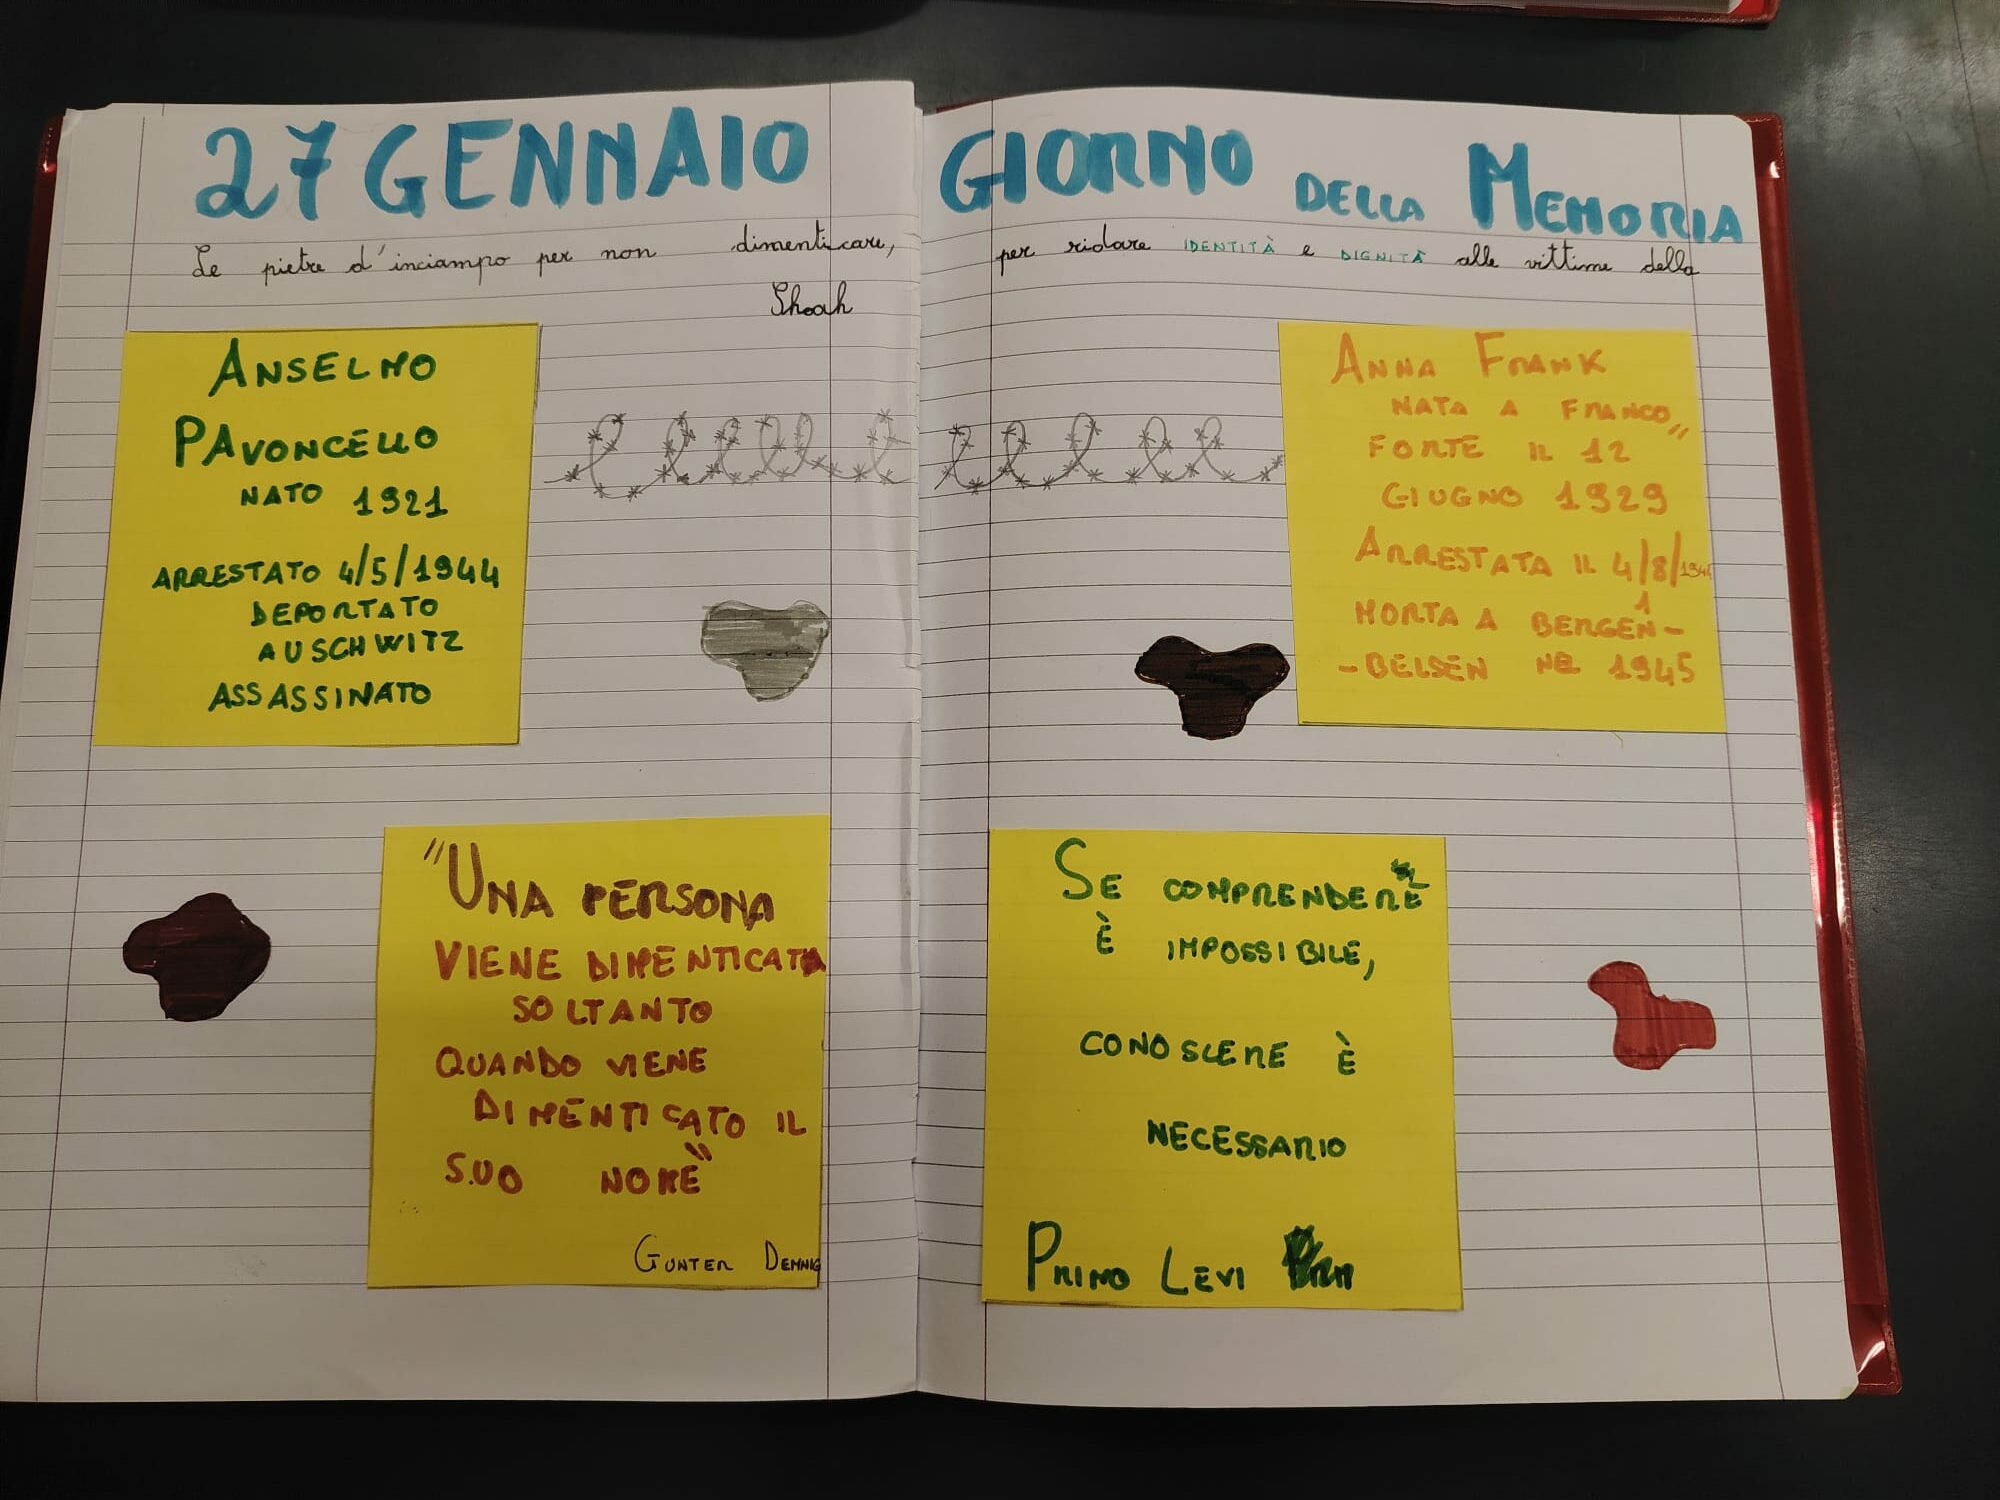 27 GENNAIO GIORNO DELLA MEMORIA
Le pietre d'inciampo per non dimenticare, per ridare IDENTITÀ e DIGNITÀ alle vittime della
Shoah
ANSELMO
PAVONCELLO
NATO 1921
ARRESTATO 4/5/1944
DEPORTATO
AUSCHWITZ
ASSASSINATO
ANNA FRANK
NATA A FRANCO,,
FORTE IL 12
GIUGNO 1929
ARRESTATA IL 4/8/1944
MORTA A BERGEN-
-BELSEN NEL 1945
"UNA PERSONA
VIENE DIMENTICATA
SOLTANTO
QUANDO VIENE
DIMENTICATO IL
SUO NOME"
GUNTER DEMNIG
SE COMPRENDERE
È IMPOSSIBILE,
CONOSCERE È
NECESSARIO
PRIMO LEVI